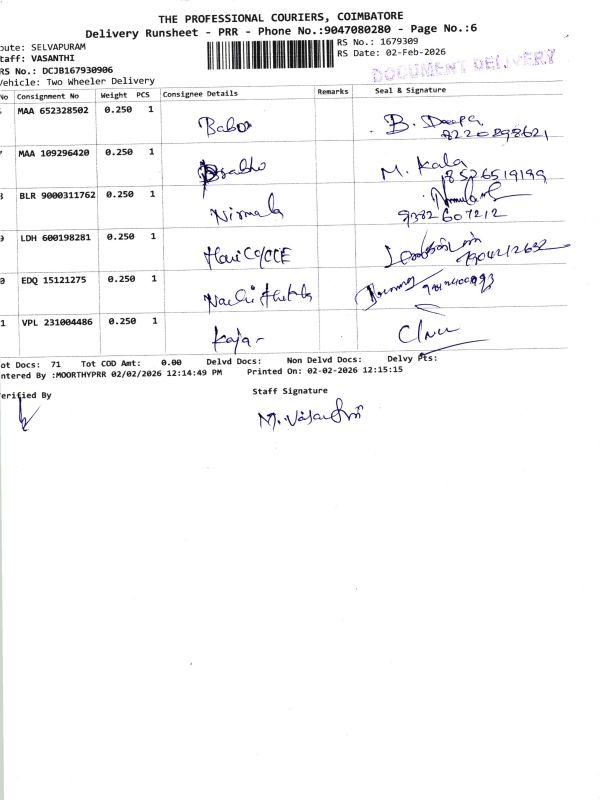 THE PROFESSIONAL COURIERS, COIMBATORE
Delivery Runsheet - PRR - Phone No.:9047080280 - Page No.:6
oute: SELVAPURAM
taff: VASANTHI
RS No.: DCJB167930906
Vehicle: Two Wheeler Delivery
RS No.: 1679309
RS Date: 02-Feb-2026
DOCUMENT DELIVERY
No Consignment No Weight PCS Consignee Details Remarks Seal & Signature
MAA 652328502 0.250 1 Babu B. Deepa
8220898621
MAA 109296420 0.250 1 M. Kala
8526519199
BLR 9000311762 0.250 1 Nirmala
9382607212
LDH 600198281 0.250 1
7904212632
0 EDQ 15121275 0.250 1
1 VPL 231004486 0.250 1 Kaja
ot Docs: 71 Tot COD Amt: 0.00 Delvd Docs: Non Delvd Docs: Delvy Pts:
ntered By :MOORTHYPRR 02/02/2026 12:14:49 PM Printed On: 02-02-2026 12:15:15
erified By Staff Signature
M. Vasanthi